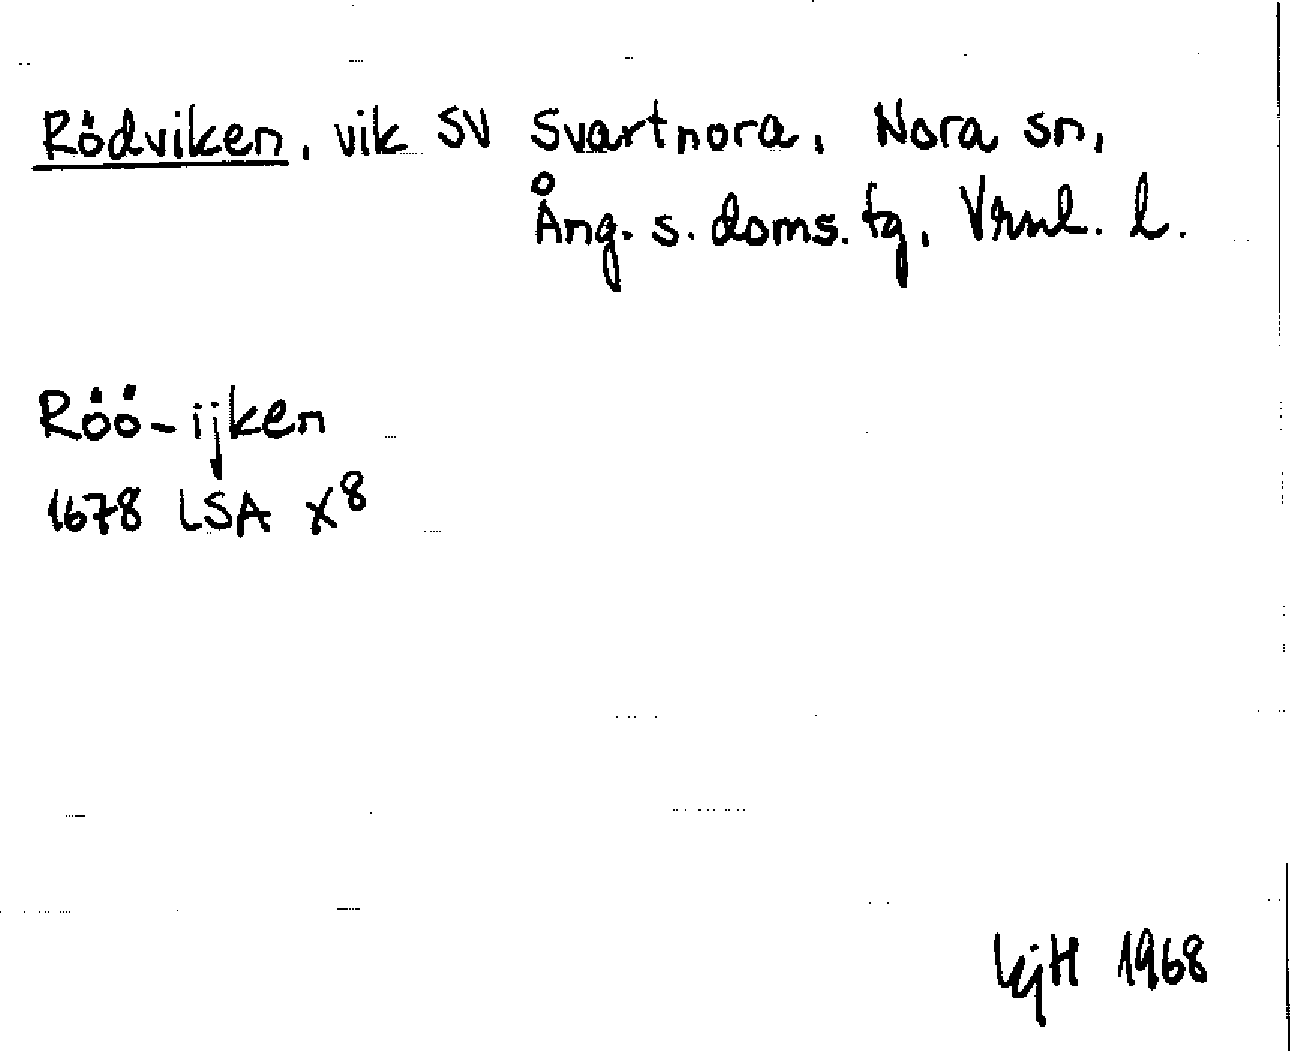 Rödviken, vik SV Svartnora, Nora sn,
Ång. s. doms. tg, Vrnl. l.
Röö-ijken
1678 LSA X8
KjH 1968